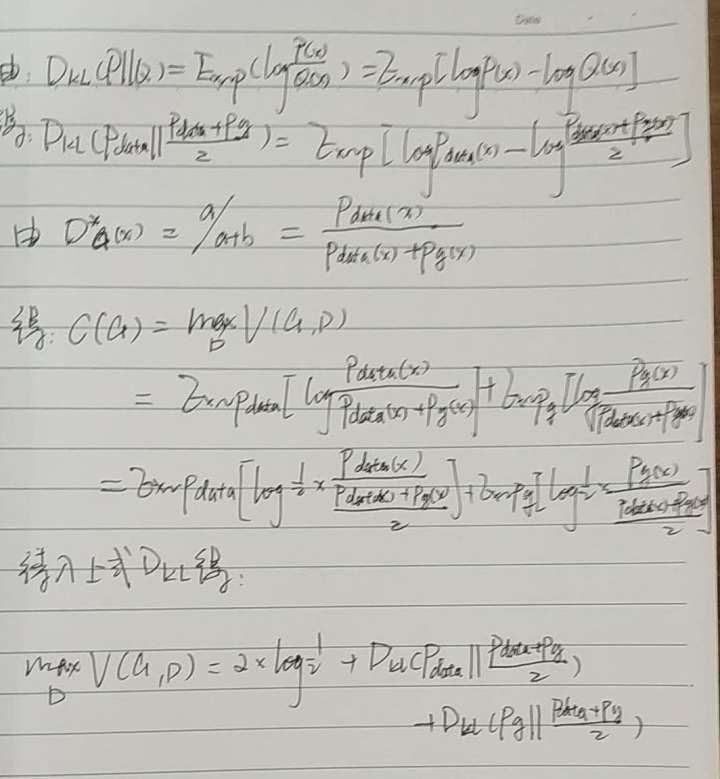 Date
由: D_KL(P||Q) = E_{x~p}(log P(x)/Q(x)) = E_{x~p}[log P(x) - log Q(x)]
得: D_KL(P_data || (P_data+P_g)/2) = E_{x~p}[log P_data(x) - log (P_data(x)+P_g(x))/2]
由 D*_G(x) = a/a+b = P_data(x)/(P_data(x)+P_g(x))
得: C(G) = max_D V(G,D)
= E_{x~p_data}[log P_data(x)/(P_data(x)+P_g(x))] + E_{x~p_g}[log P_g(x)/(P_data(x)+P_g(x))]
= E_{x~p_data}[log 1/2 × P_data(x)/((P_data(x)+P_g(x))/2)] + E_{x~p_g}[log 1/2 × P_g(x)/((P_data(x)+P_g(x))/2)]
待入上式D_KL得:
max_D V(G,D) = 2×log 1/2 + D_KL(P_data || (P_data+P_g)/2)
+ D_KL(P_g || (P_data+P_g)/2)